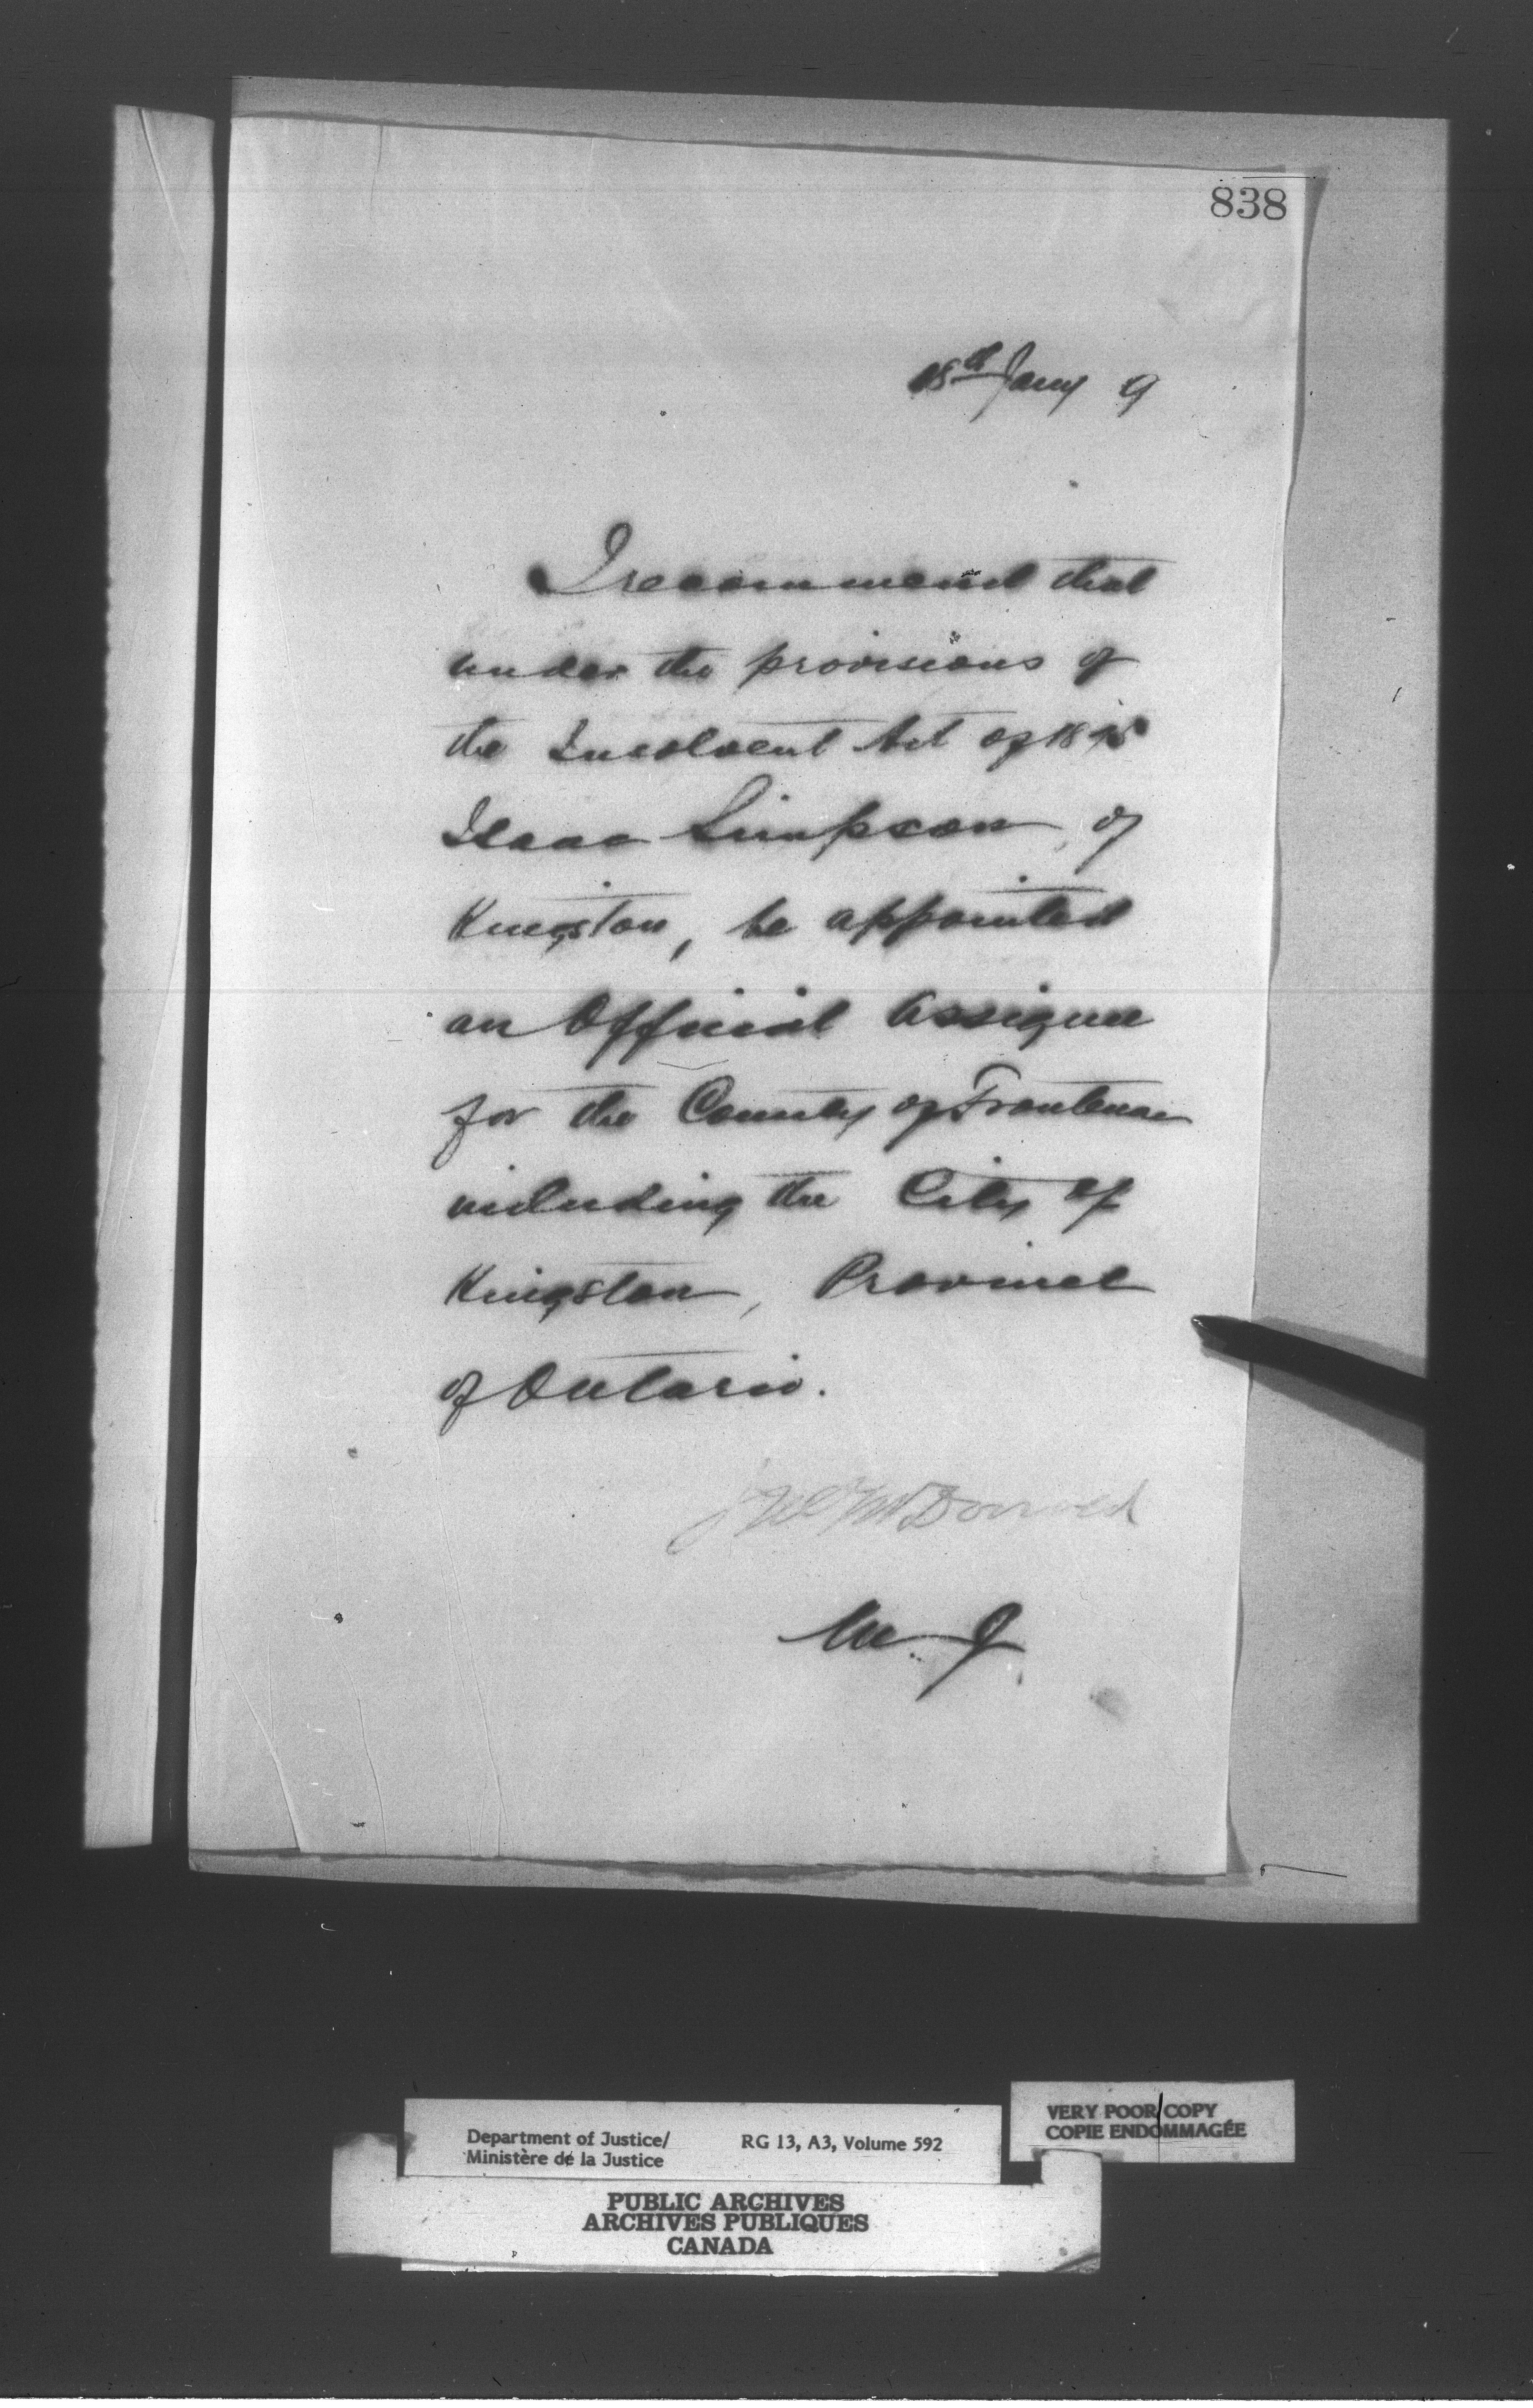 838
18th Jany 9
I recommend that
under the provisions of
the Insolvent Act of 1875
Isaac Simpson, of
Kingston, be appointed
an Official Assignee
for the County of Frontenac
including the City of
Kingston, Province
of Ontario.
McDonald
M. J.
VERY POOR COPY
COPIE ENDOMMAGÉE
Department of Justice/
Ministère de la Justice
RG 13, A3, Volume 592
PUBLIC ARCHIVES
ARCHIVES PUBLIQUES
CANADA